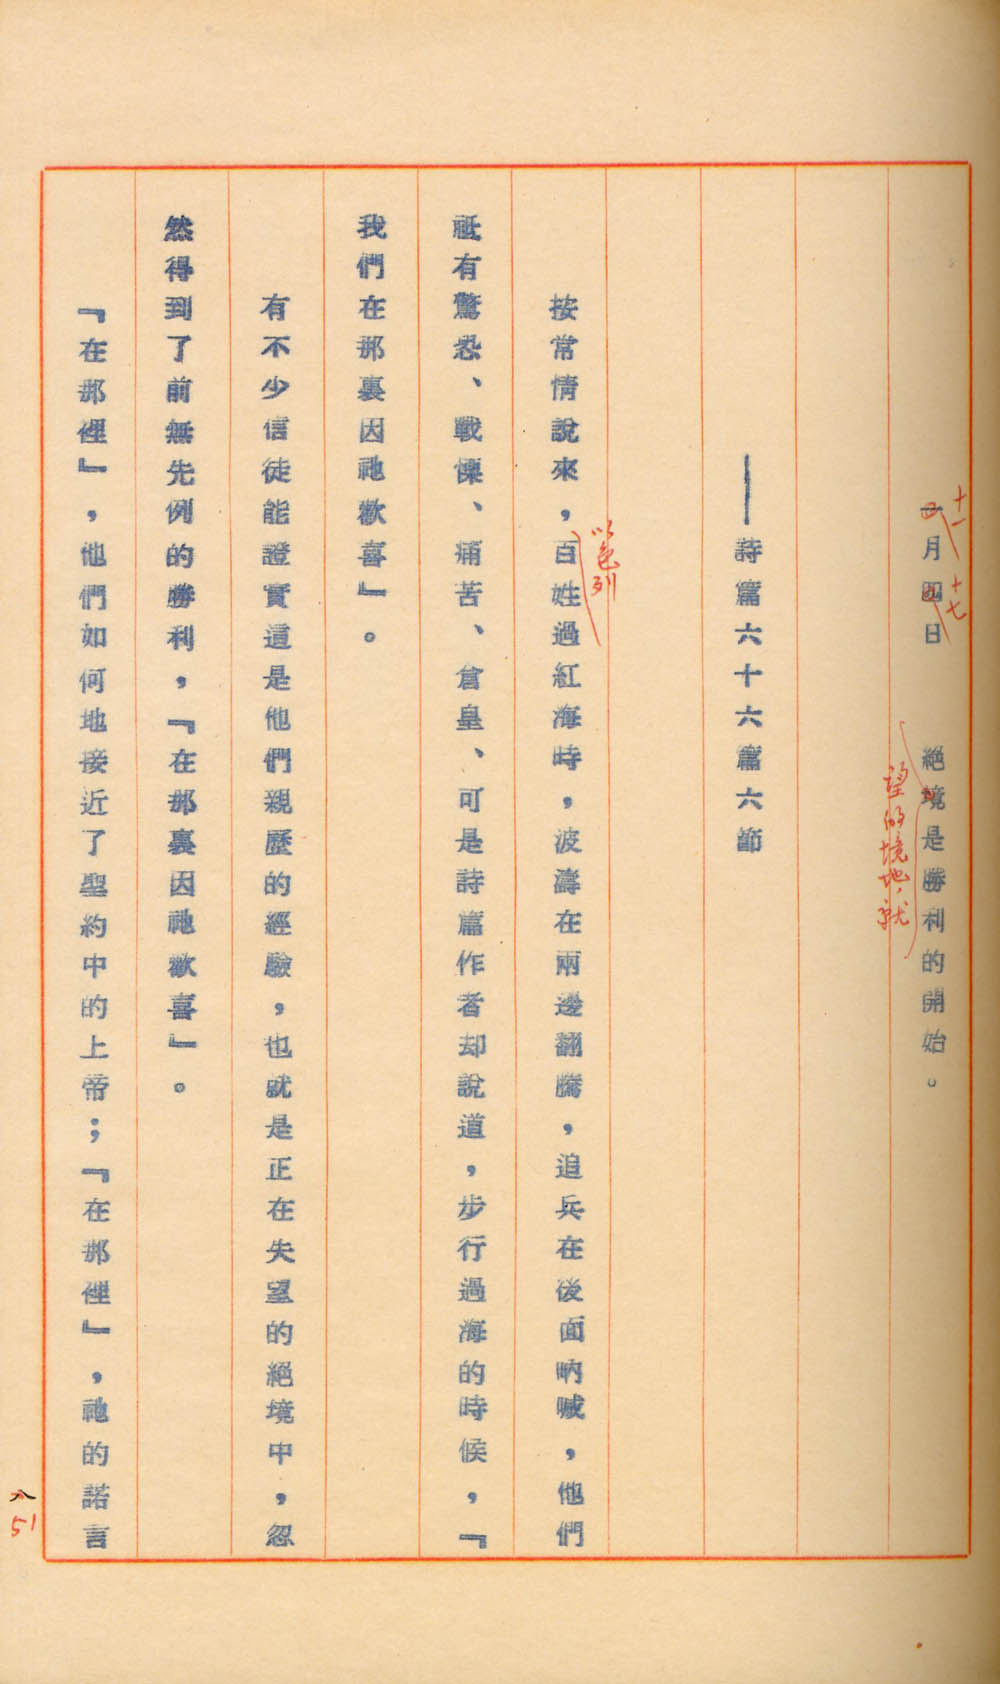 一月四日　絕境是勝利的開始。
十一
十七
望的境地，就
——詩篇六十六篇六節
按常情說來，百姓過紅海時，波濤在兩邊翻騰，追兵在後面吶喊，他們
以色列
祗有驚恐、戰慄、痛苦、倉皇、可是詩篇作者却說道，步行過海的時候，『
我們在那裏因祂歡喜』。
有不少信徒能證實這是他們親歷的經驗，也就是正在失望的絕境中，忽
然得到了前無先例的勝利，『在那裏因祂歡喜』。
『在那裡』，他們如何地接近了聖約中的上帝；『在那裡』，祂的諾言
八
51